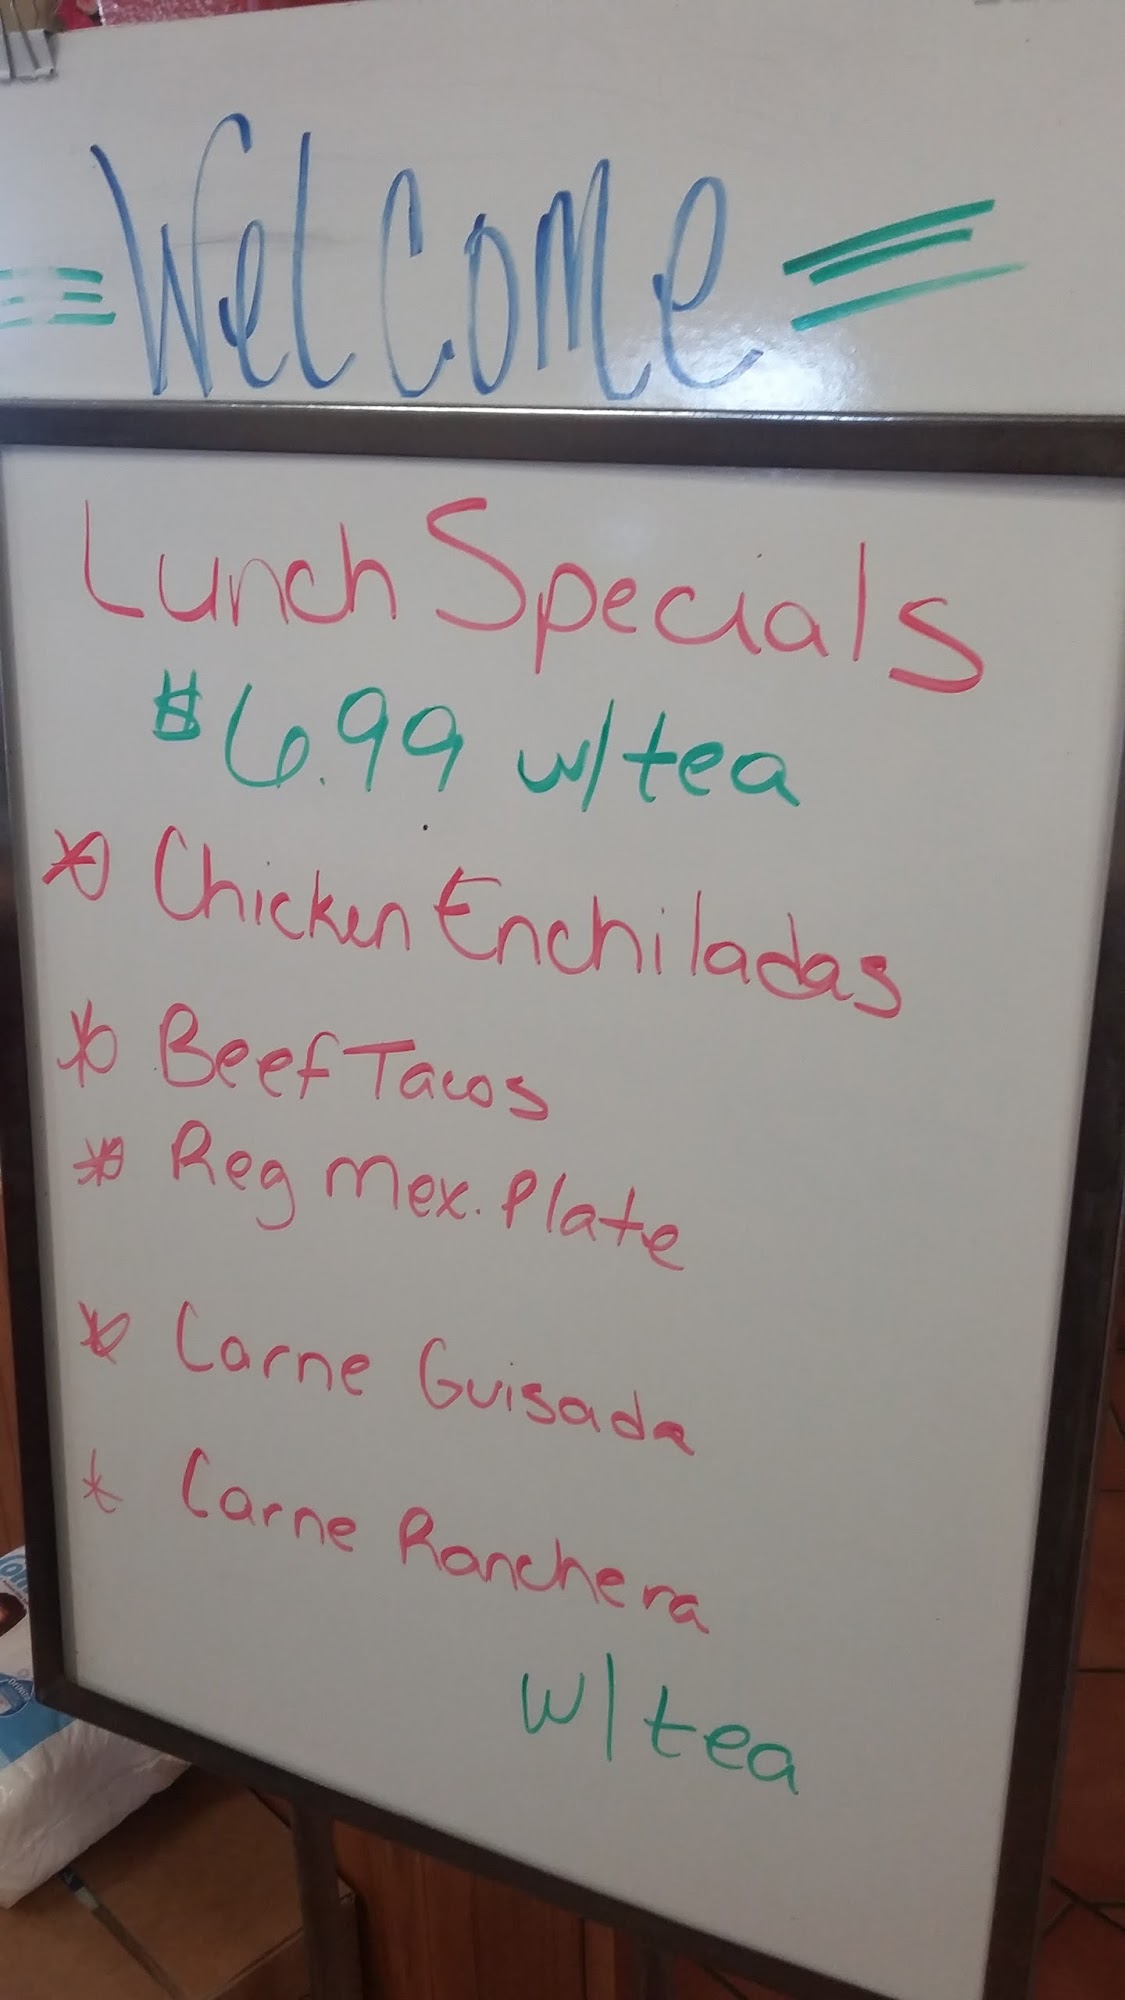 Welcome
Lunch Specials
$6.99 w/tea
* Chicken Enchiladas
* Beef Tacos
* Reg Mex. Plate
* Carne Guisada
* Carne Ranchera
w/tea